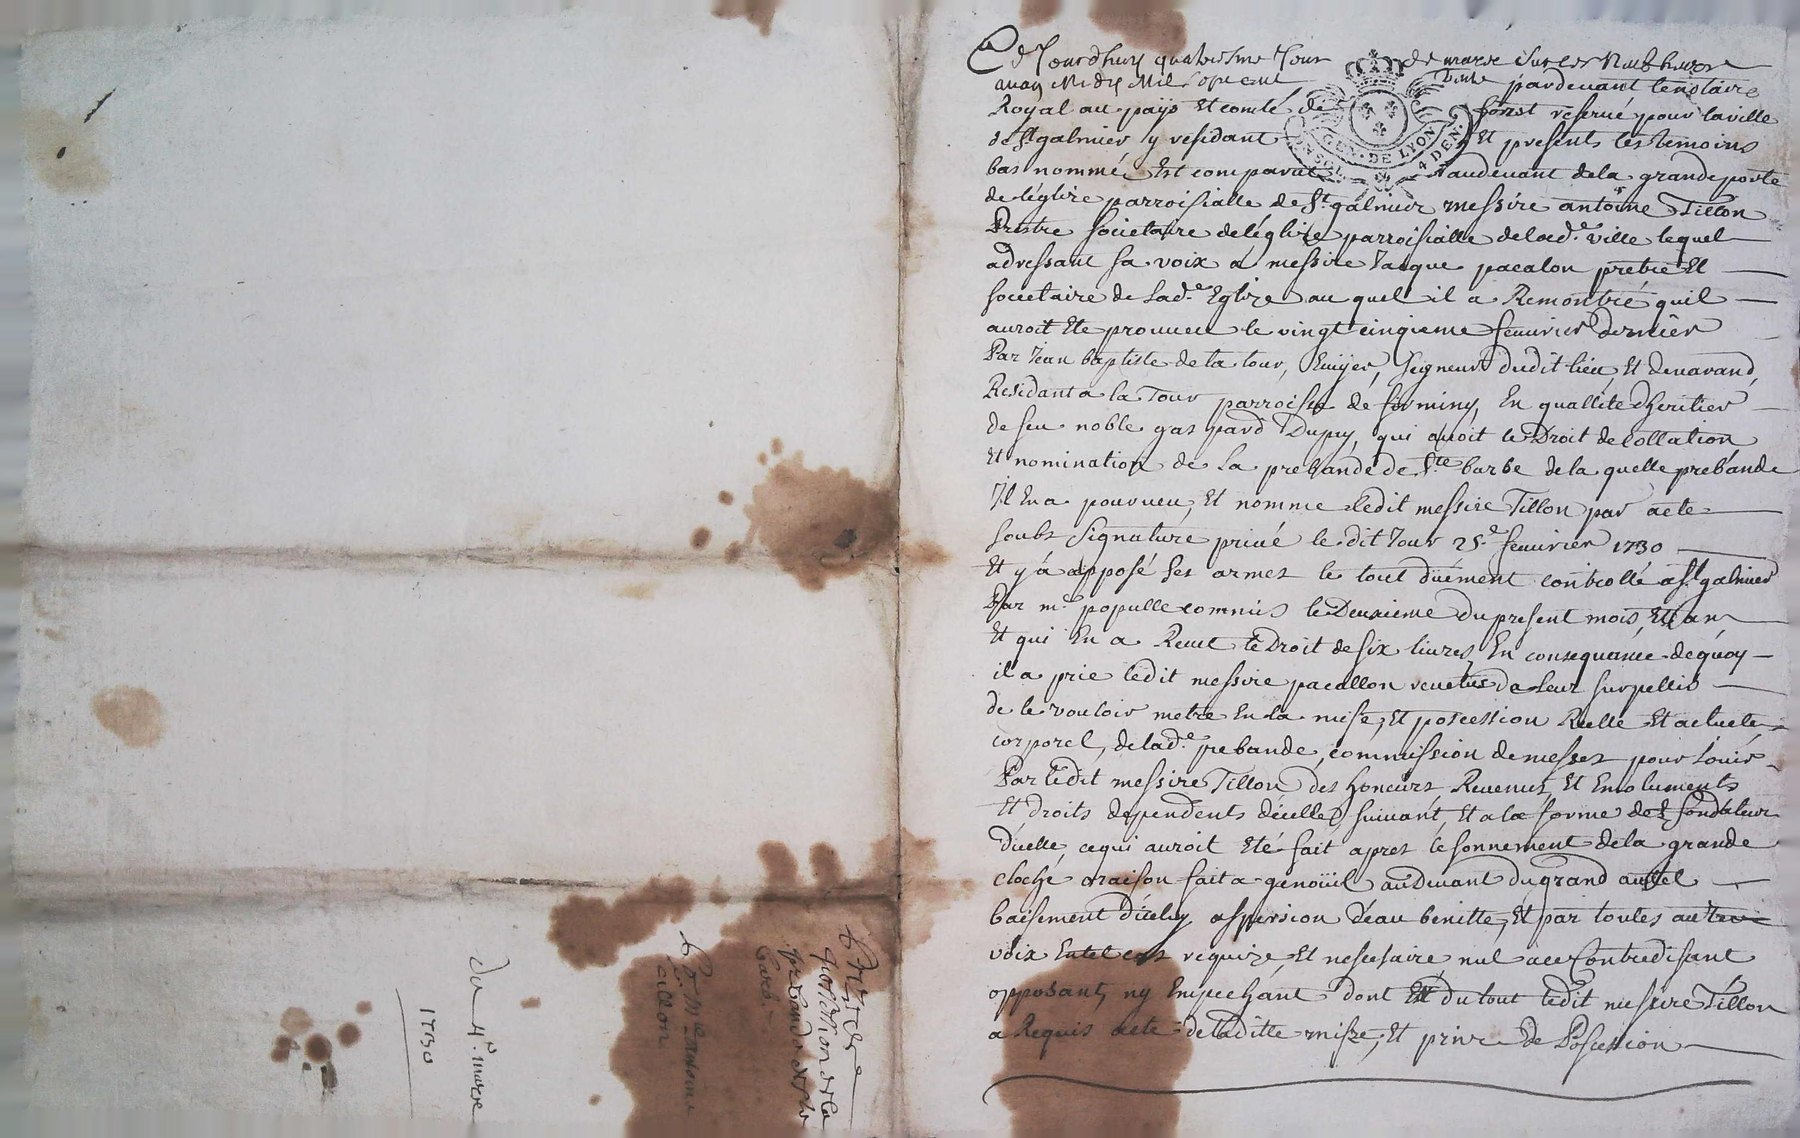 Ce d'Jourdhuy quatriesme Jour de mars sur les Neuf heures
avan Midy Mil sept cent trente pardevant le notaire
Royal au païs Et comté de forest reservé pour la ville
de St galmier y residant Et presents les temoins
bas nommé, Est comparut audevant de la grande porte
de léglize parroissialle de St galmier messire antoine Tillon
Prestre societaire de léglize parroissialle de lad.e ville lequel
adressant sa voix a messire Jacque pacalon prêtre Et
societaire de Lad.e Eglize au quel il a Remontré quil
auroit Ete prouveu le vingt cinqieme feuurier dernier
Par Jean baptiste de la tour, Ecuÿer, seigneur dudit lieu, Et de varand,
Residant a la Tour parroisse de firminy, En quallité dheritier
de feu noble gaspard Dupuy, qui avoit le Droit de collation
Et nomination de La prebande de Ste barbe de la quelle prebande
Il En a pourveu, Et nomme ledit messire Tillon par acte
soubs signature privé le dit Jour 25.e feuurier 1730
Et y a apposé ses armes le tout düement controllé a St galmier
Par m.e populle commis le Deuxieme du present mois, Et an
Et qui En a Receu le Droit de six livres, En consequance de quoy
il a prie ledit messire pacallon revetus de Leur surpellis
de le vouloir metre En la mise, Et poscession Reelle Et actuele
corporel, de lad.e prebande, commission de messes pour Jouir
Par ledit messire Tillon des honeurs, Revenus, Et Emoluments
Et droits dependents dicelle, suivant, Et a la forme de fondateur
Dicelle, ce qui auroit Eté fait apres le sonnement de la grande
cloche oraison fait a genoüil au Devant du grand autel
baisement d'iceluy, aspersion d'eau benitte, Et par toutes autre
voix En tel cas requize, Et nescesaire nul a ce Contredisant
opposant, ny Empechant dont Et du tout ledit messire Tillon
a Requis acte de laditte mise, Et prise de Poscession
GEN. DE LYON
4 DEN.
possession de la
prebande de Ste
barbe
Antoine
tillon
du 4.e mars
1730